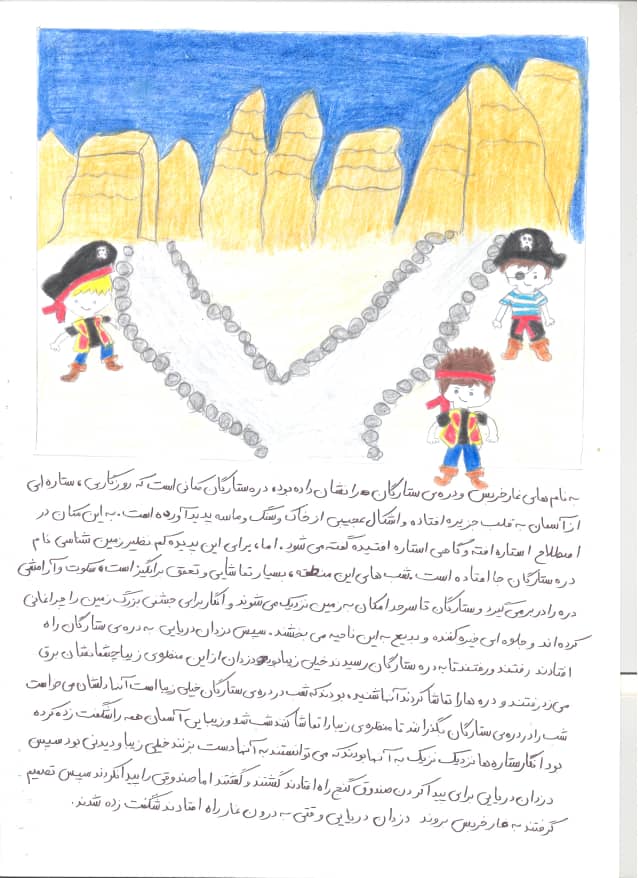 به نام های غار خربس و دره ی ستارگان را نشان داده بود، دره ستارگان مکانی است که روزگاری، ستاره ای
از آسمان به قلب جزیره افتاده و اشکال عجیبی از خاک و سنگ و ماسه پدید آورده است. به این مکان در
اصطلاح استاره افته و گاهی استاره افتیده گفته می شود. اما، برای این پدیده کم نظیر زمین شناسی نام
دره ستارگان جا افتاده است. شب های این منطقه، بسیار تماشایی و تعمق برانگیز است، سکوت و آرامشی
دره را در بر می گیرد و ستارگان تا سر حد امکان به زمین نزدیک می شوند و انگار برای جشنی بزرگ زمین را چراغانی
کرده اند و جلوه ای خیره کننده و بدیع به این ناحیه می بخشند. سپس دزدان دریایی به دره ی ستارگان راه
افتادند رفتند و رفتند تا به دره ستارگان رسیدند خیلی زیبا بود دزدان از این منظره ی زیبا چشمانشان برق
می زد رفتند و دره ها را تماشا کردند آنها شنیده بودند که شب در دره ی ستارگان خیلی زیبا است آنها دلشان می خواست
شب را در دره ی ستارگان بگذرانند تا منظره ی زیبا را تماشا کنند شب شد و زیبایی آسمان همه را شگفت زده کرده
بود انگار ستاره ها نزدیک نزدیک به آنها بودند که می توانستند به آنها دست بزنند خیلی زیبا و دیدنی بود سپس
دزدان دریایی برای پیدا کردن صندوق گنج راه افتادند گشتند و گشتند اما صندوقی را پیدا نکردند سپس تصمیم
گرفتند به غار خربس بروند دزدان دریایی وقتی به درون غار راه افتادند شگفت زده شدند.